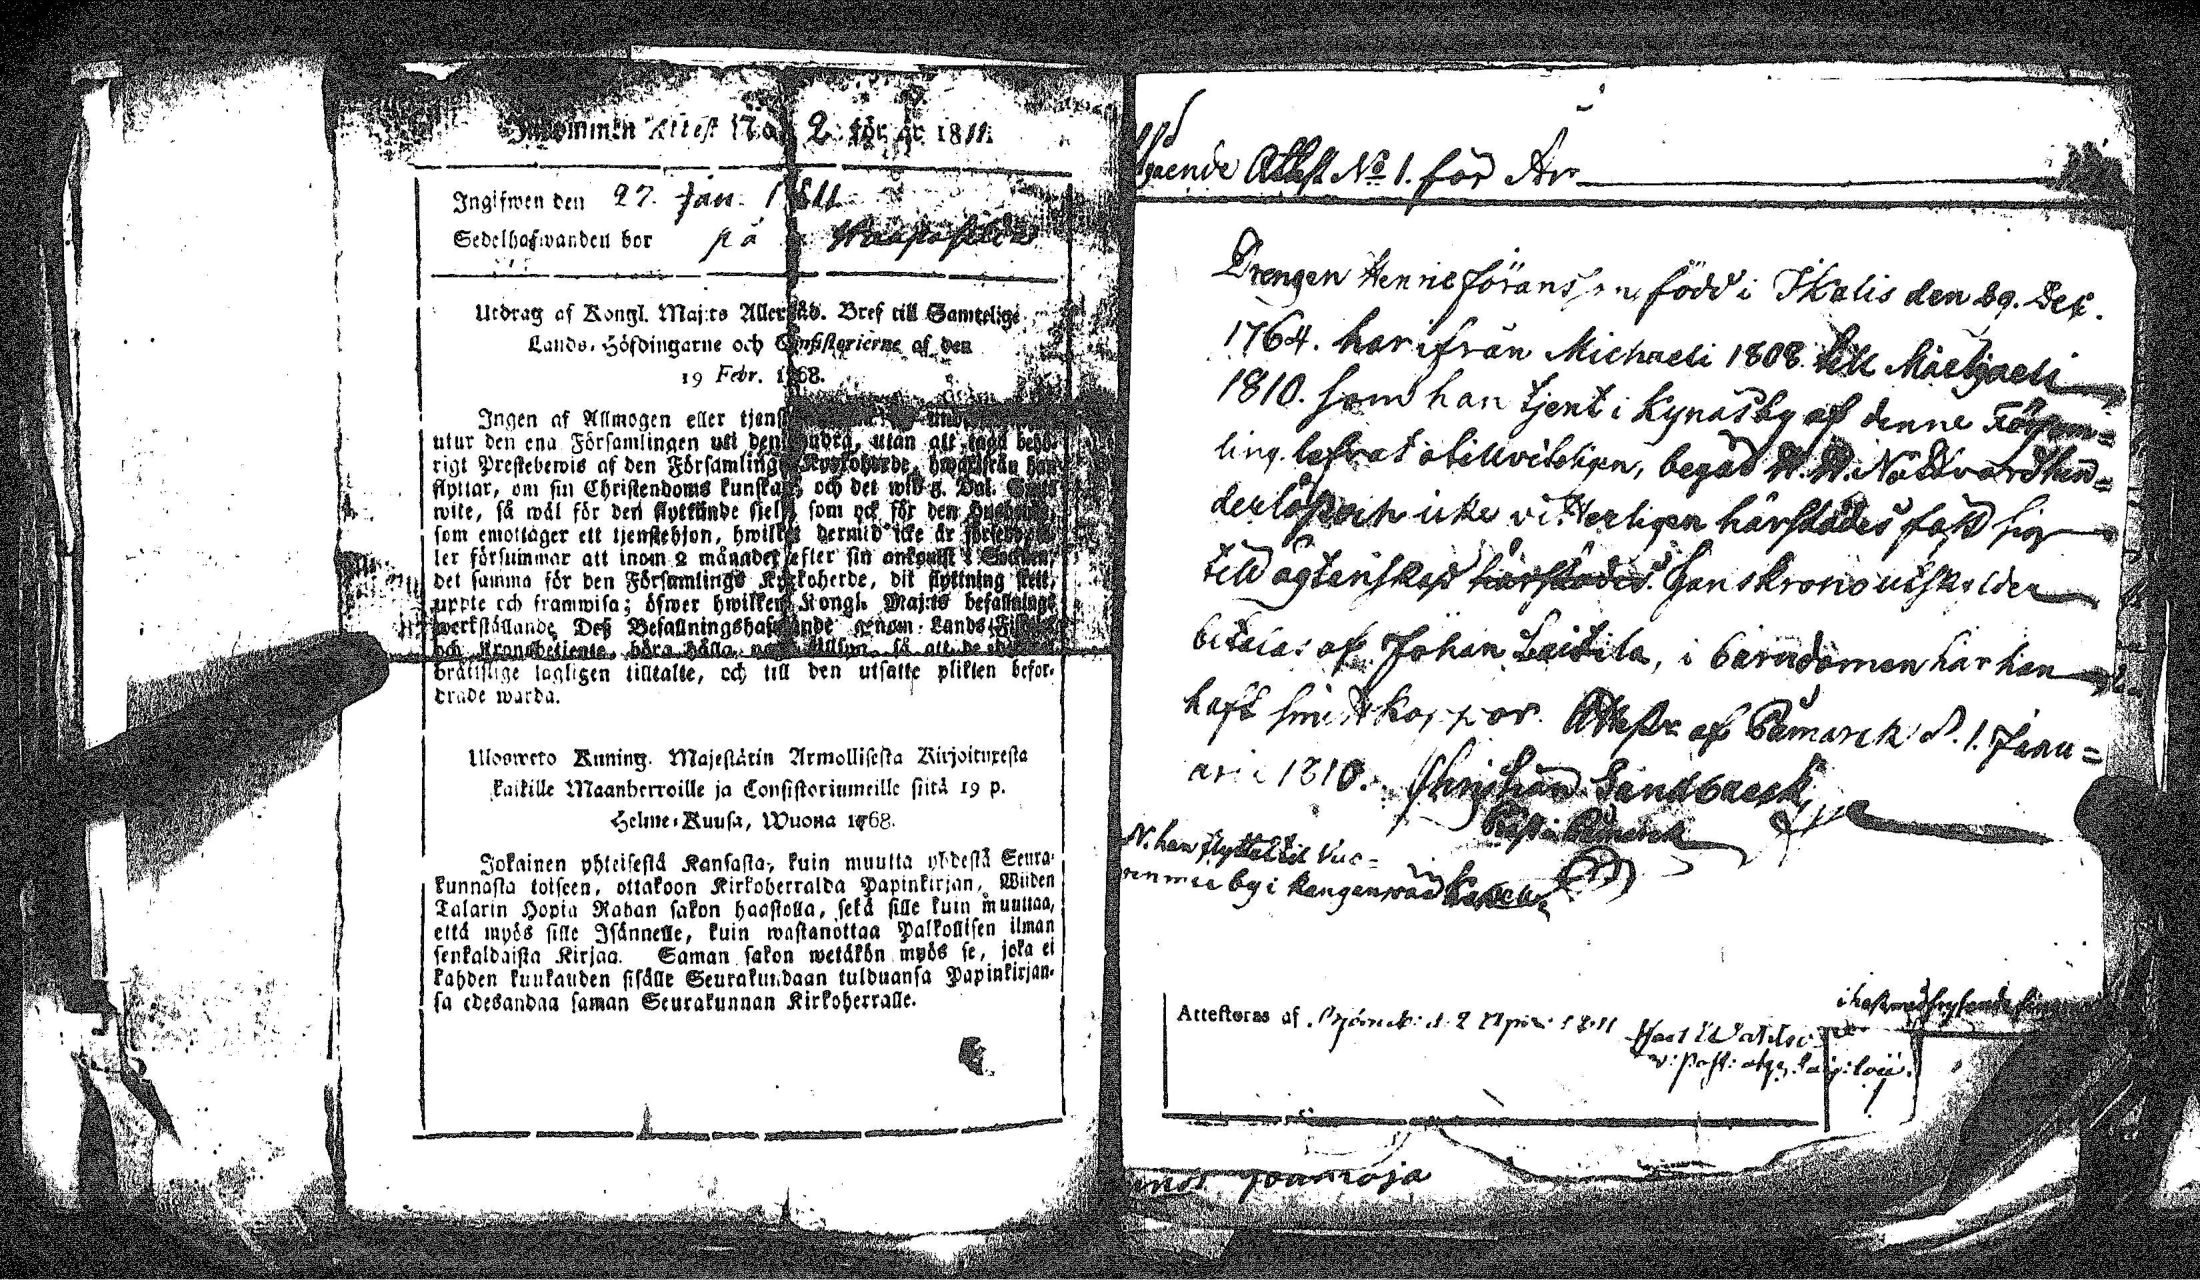 Inkommen Attest No 2 för år 1811.
Ingifwen den 27. Jan. 1811
Sedelhafwanden bor på
Utdrag af Kongl. Maj:ts Allernåd. Bref till Samtelige
Lands-Höfdingarne och Consistorierne af den
19 Febr. 1768.
Ingen af Allmogen eller tjenst
utur den ena Församlingen uti den andra, utan att taga behö-
rigt Prestebewis af den Församlings Kyrkoherde, hwarifrån han
flyttar, om sin Christendoms kunskap, och det wid 5. Dal. Smts
wite, så wäl för den flyttande sjelf, som ock för den Husbonde,
som emottager ett tjenstehjon, hwilket dermid icke är försedt, el-
ler försummar att inom 2 månader efter sin ankomst i Socknen,
det samma för den Församlings Kyrkoherde, dit flyttning skett,
uppte och framwisa; öfwer hwilken Kongl. Maj:ts befallnings
werkställande Deß Befallningshafwande genom Lands-Fiskaler
och Kronobetjente, böra hålla noga tillsyn, så att de
brättslige lagligen tilltalte, och till den utsatte plikten befor-
drade warda.
Ulosweto Kuning. Majestätin Armollisesta Kirjoituresta
kaikille Maanherroille ja Consistoriumeille siitä 19 p.
Helme-Kuusa, Wuona 1768.
Jokainen yhteisestä Kansasta, kuin muutta yhdestä Seura-
kunnasta toiseen, ottakoon Kirkoherralda Papinkirjan, Wiiden
Talarin Hopia Rahan sakon haastolla, sekä sille kuin muuttaa,
että myös sille Isännelle, kuin wastanottaa Palkollisen ilman
senkaldaista Kirjaa. Saman sakon wetäkön myös se, joka ei
kahden kuukauden sisälle Seurakundaan tulduansa Papinkirjan-
sa edesandaa saman Seurakunnan Kirkoherralle.
gaende Attest No 1. för År
Drengen Henric Jöransson född i Ikalis den 29. Dec.
1764. har ifrån Michaeli 1808 till Michaeli
1810. som han tjent i Kynäsby af denne Försam=
ling lefvat otillviteligen, begåd H. H. Nattvard
och icke vitterligen härstädes fäst sig
till ägtenskap härstädes. Hans kronoutskylder
betalas af Johan Laitila, i barndomen har han
haft sine koppor. Attestr af Påmarck d. 1. Janu=
arii 1810. Christian Sandbaeck
Past. i Påmarck
N. han flyttat til Vuo=
renmaa by i Kangenpää Kapell
Attesteras af